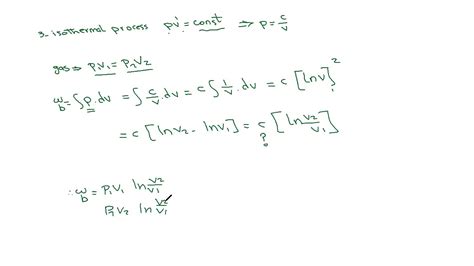 3- isothermal process pv = const ⇒ p = c/v
gas ⇒ p₁v₁ = p₂v₂
w_b = ∫ p. dv = ∫ c/v . dv = c ∫ 1/v . dv = c [ln v]₁²
= c [ln v₂ - ln v₁] = c [ln v₂/v₁]
?
∴ w_b = p₁v₁ ln v₂/v₁
p₂v₂ ln v₂/v₁